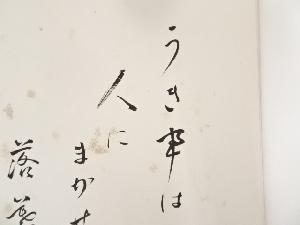 うき事は
人に
まかせ
落葉